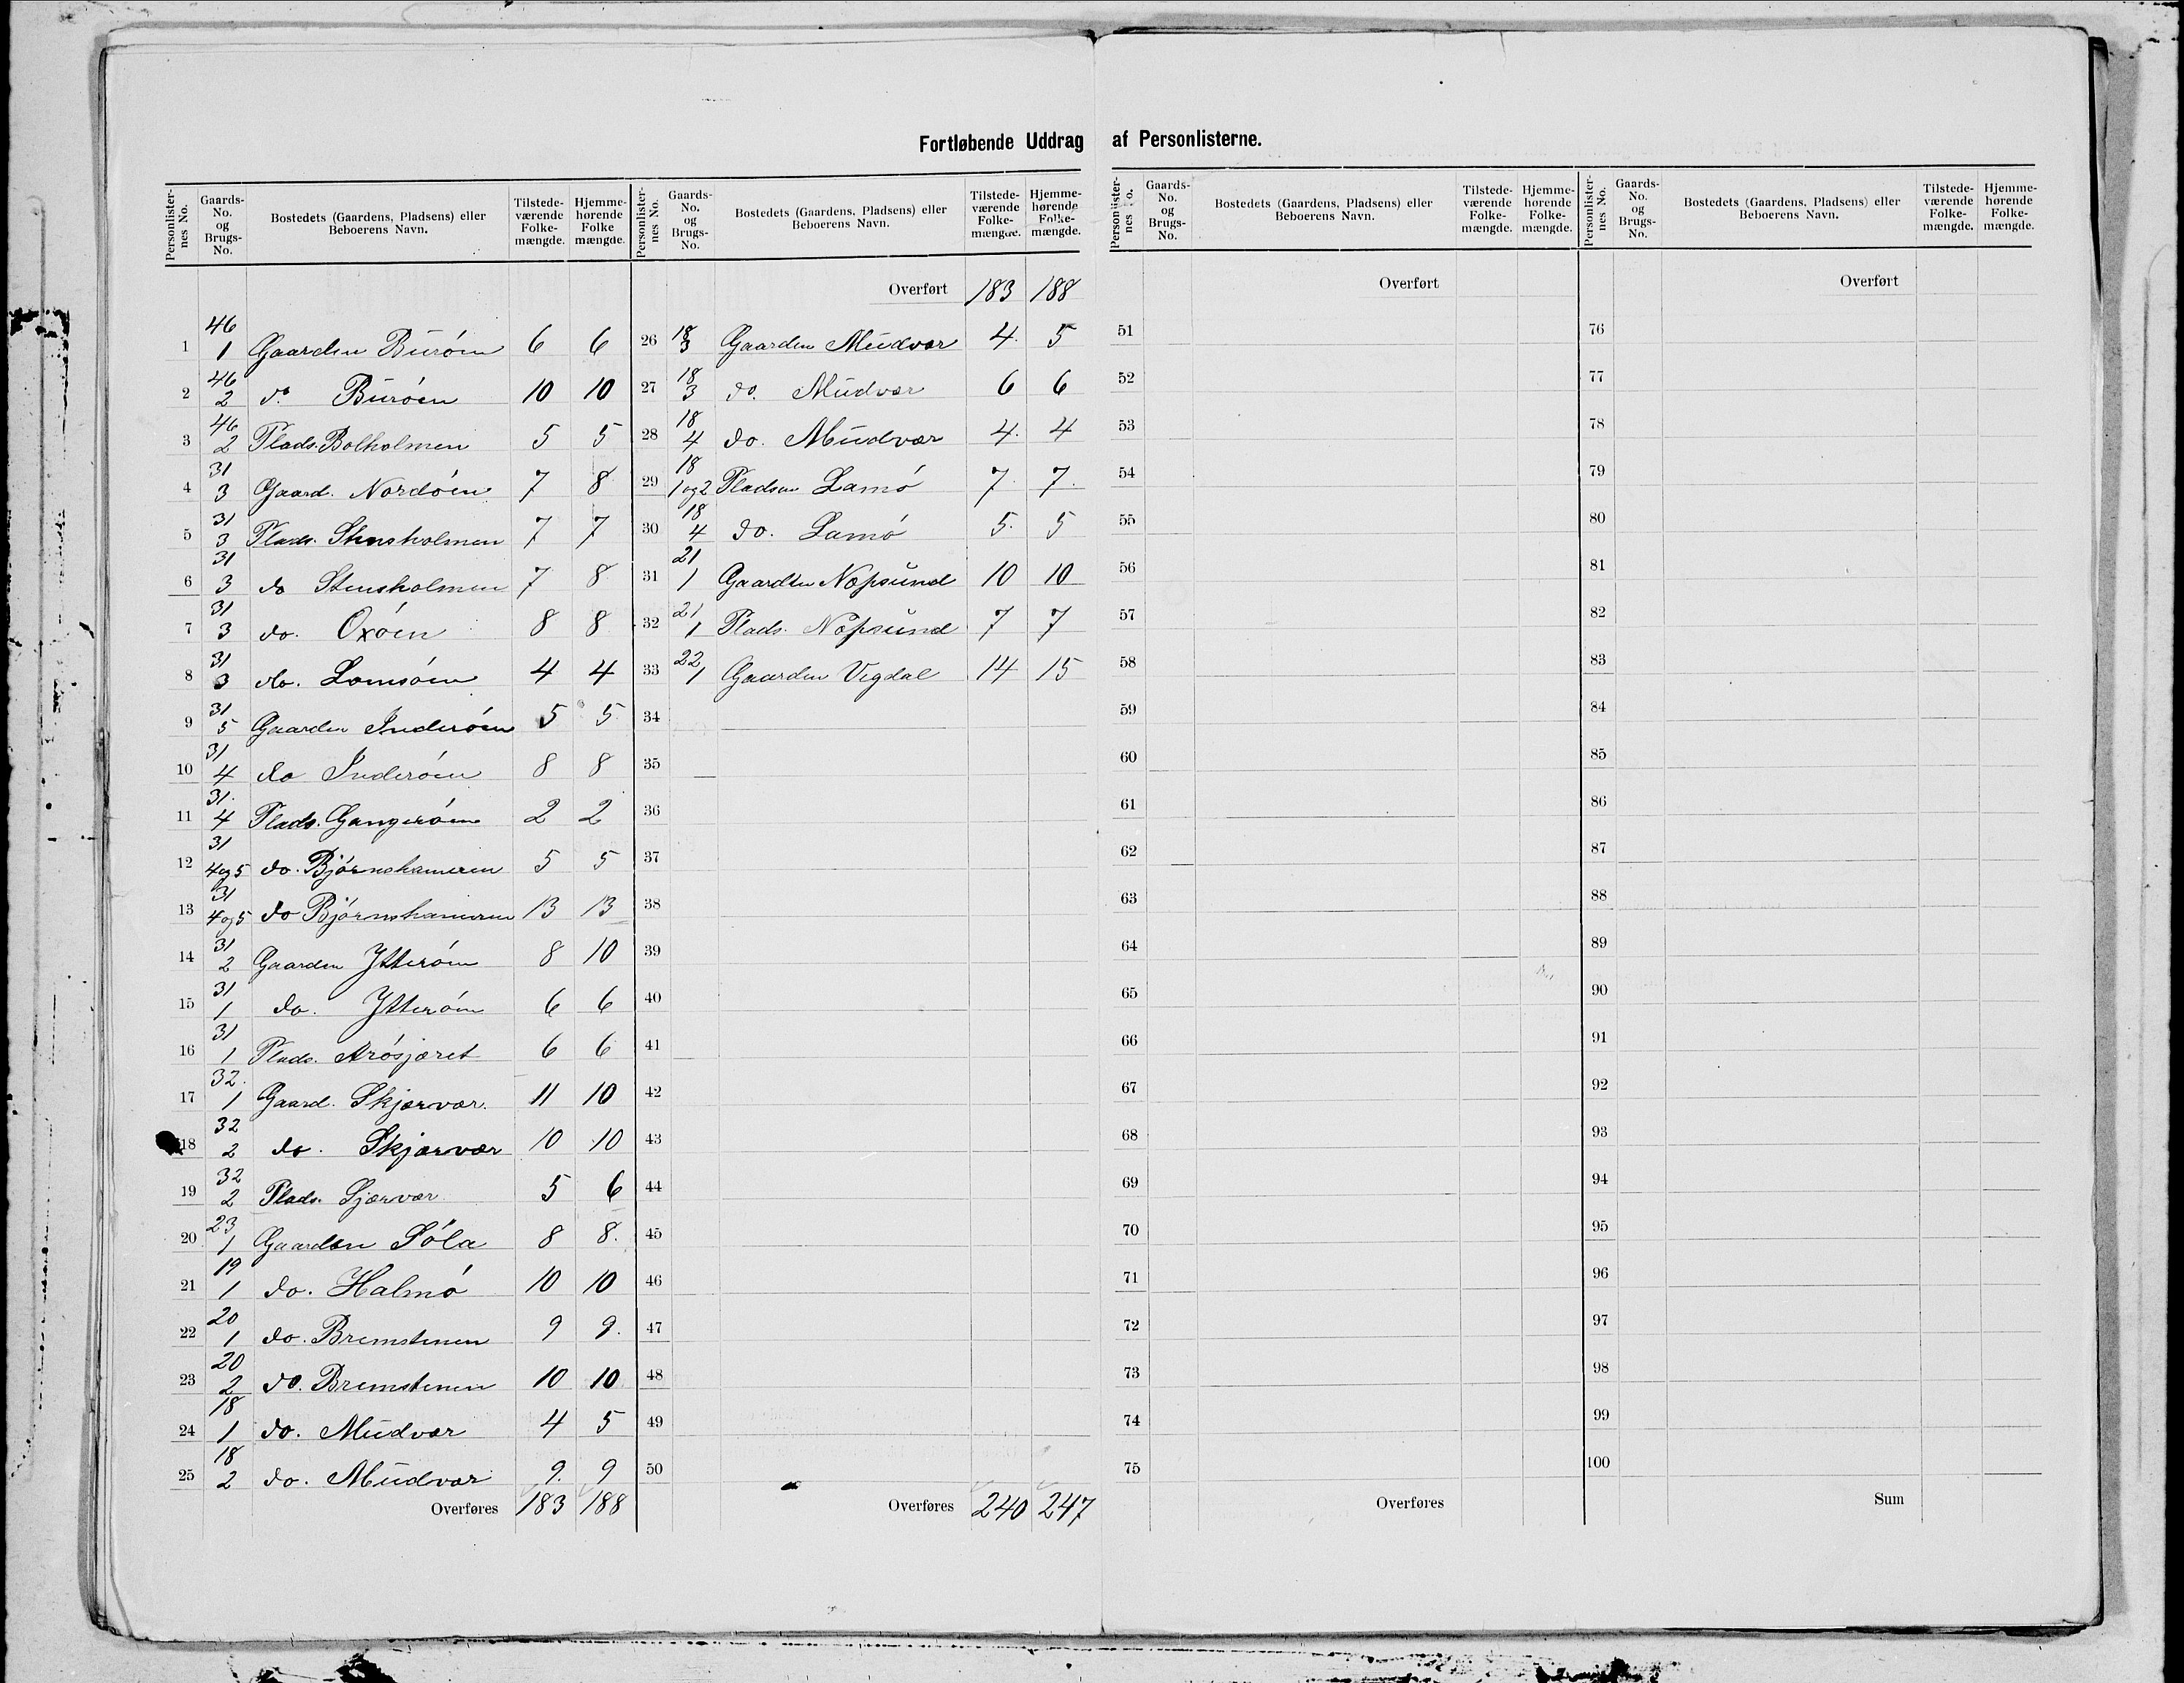 Fortløbende Uddrag af Personlisterne.
Personlisternes No. Gaards-No. og Brugs-No. Bostedets (Gaardens, Pladsens) eller Beboerens Navn. Tilstedeværende Folkemængde. Hjemmehørende Folkemængde.
1 46/1 Gaarden Burøen 6 6
2 46/2 do Burøen 10 10
3 46/2 Plads. Bolholmen 5 5
4 31/3 Gaard. Nordøen 7 8
5 31/3 Plads. Stensholmen 7 7
6 31/3 do Stensholmen 7 8
7 31/3 do. Oxøen 8 8
8 31/3 do. Lomsøen 4 4
9 31/5 Gaarden Inderøen 5 5
10 31/4 do Inderøen 8 8
11 31/4 Plads. Gangerøen 2 2
12 31/4og5 do. Bjørnshameren 5 5
13 31/4og5 do Bjørnshameren 13 13
14 31/2 Gaarden Ytterøen 8 10
15 31/1 do. Ytterøen 6 6
16 31/1 Plads. Arøsjæret 6 6
17 32/1 Gaard. Skjærvær. 11 10
18 32/2 do. Skjærvær 10 10
19 32/2 Plads. Sjærvær 5 6
20 23/1 Gaarden Søla 8 8.
21 19/1 do. Halmø 10 10
22 20/1 do. Bremstenen 9 9.
23 20/2 do. Bremstenen 10 10
24 18/1 do. Mudvær 4 5
25 18/2 do. Mudvær 9. 9
Overføres 183 188
Personlisternes No. Gaards-No. og Brugs-No. Bostedets (Gaardens, Pladsens) eller Beboerens Navn. Tilstedeværende Folkemængde. Hjemmehørende Folkemængde.
Overført 183 188
26 18/3 Gaarden Mudvær 4. 5
27 18/3 do. Mudvær 6 6
28 18/4 do. Mudvær 4. 4
29 18/1og2 Pladsen Lamø 7 7.
30 18/4 do. Lamø 5. 5
31 21/1 Gaarden Næpsund 10 10
32 21/1 Plads. Næpsund 7 7
33 22/1 Gaarden Vegdal 14 15
34
35
36
37
38
39
40
41
42
43
44
45
46
47
48
49
50
Overføres 240 247
Personlisternes No. Gaards-No. og Brugs-No. Bostedets (Gaardens, Pladsens) eller Beboerens Navn. Tilstedeværende Folkemængde. Hjemmehørende Folkemængde.
Overført
51
52
53
54
55
56
57
58
59
60
61
62
63
64
65
66
67
68
69
70
71
72
73
74
75
Overføres
Personlisternes No. Gaards-No. og Brugs-No. Bostedets (Gaardens, Pladsens) eller Beboerens Navn. Tilstedeværende Folkemængde. Hjemmehørende Folkemængde.
Overført
76
77
78
79
80
81
82
83
84
85
86
87
88
89
90
91
92
93
94
95
96
97
98
99
100
Sum